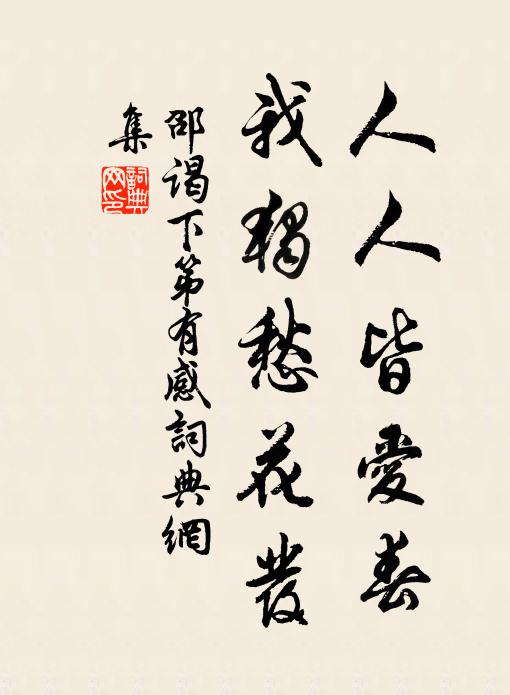 人人皆愛春
我獨愁花發
邵谒下第有感詞典網
集
詞典
网印